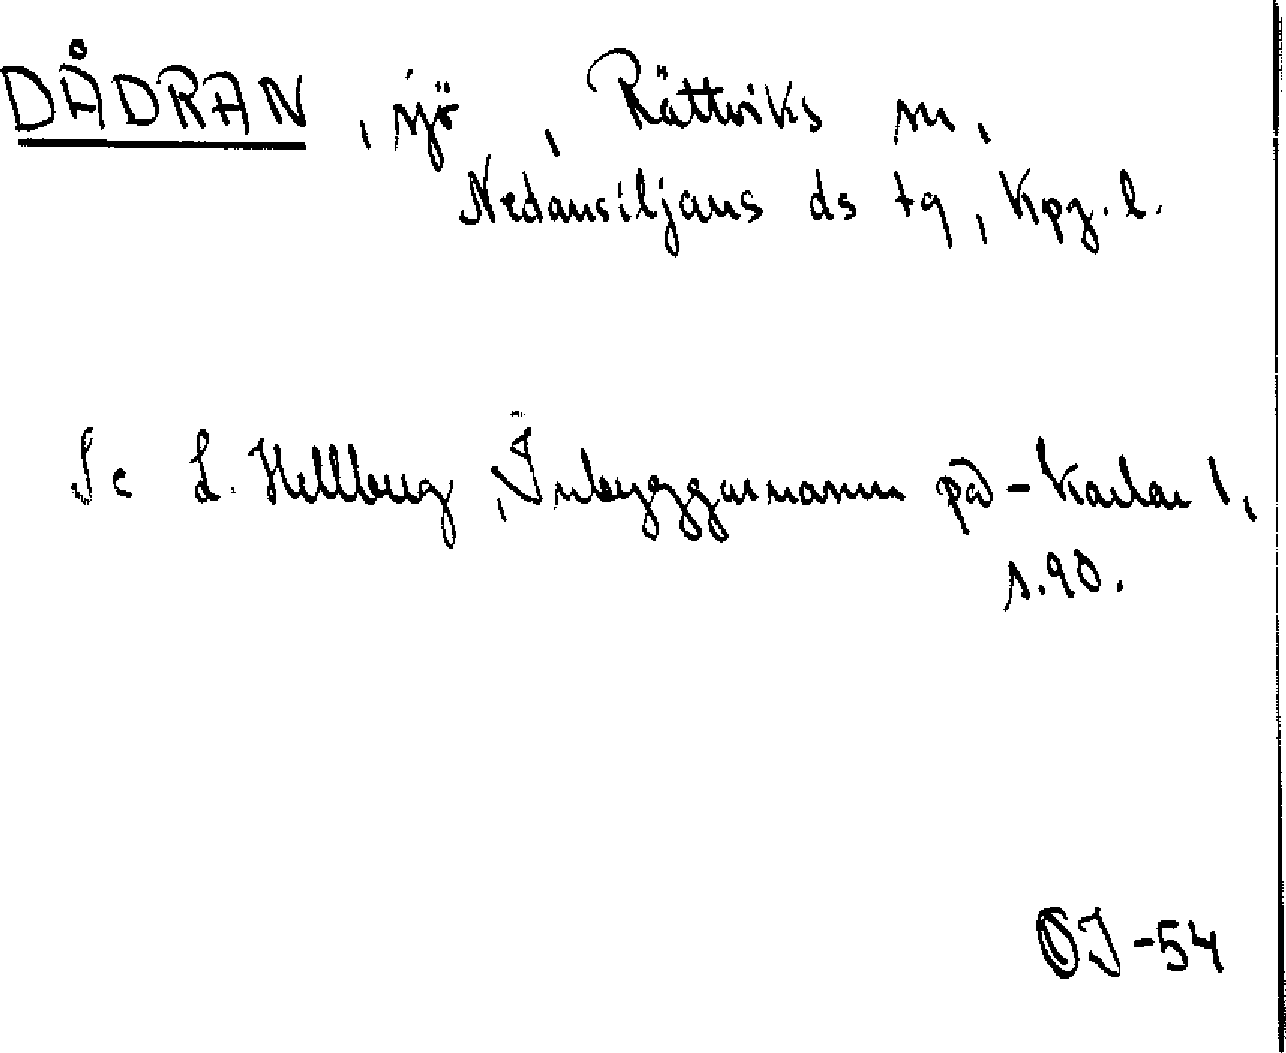 DÅDRAN, sjö, Rättviks sn,
Nedansiljans ds tg, Kpg. l.
Se L. Hellberg, Inbyggarnamn på -karlar 1,
s. 90.
OJ-54